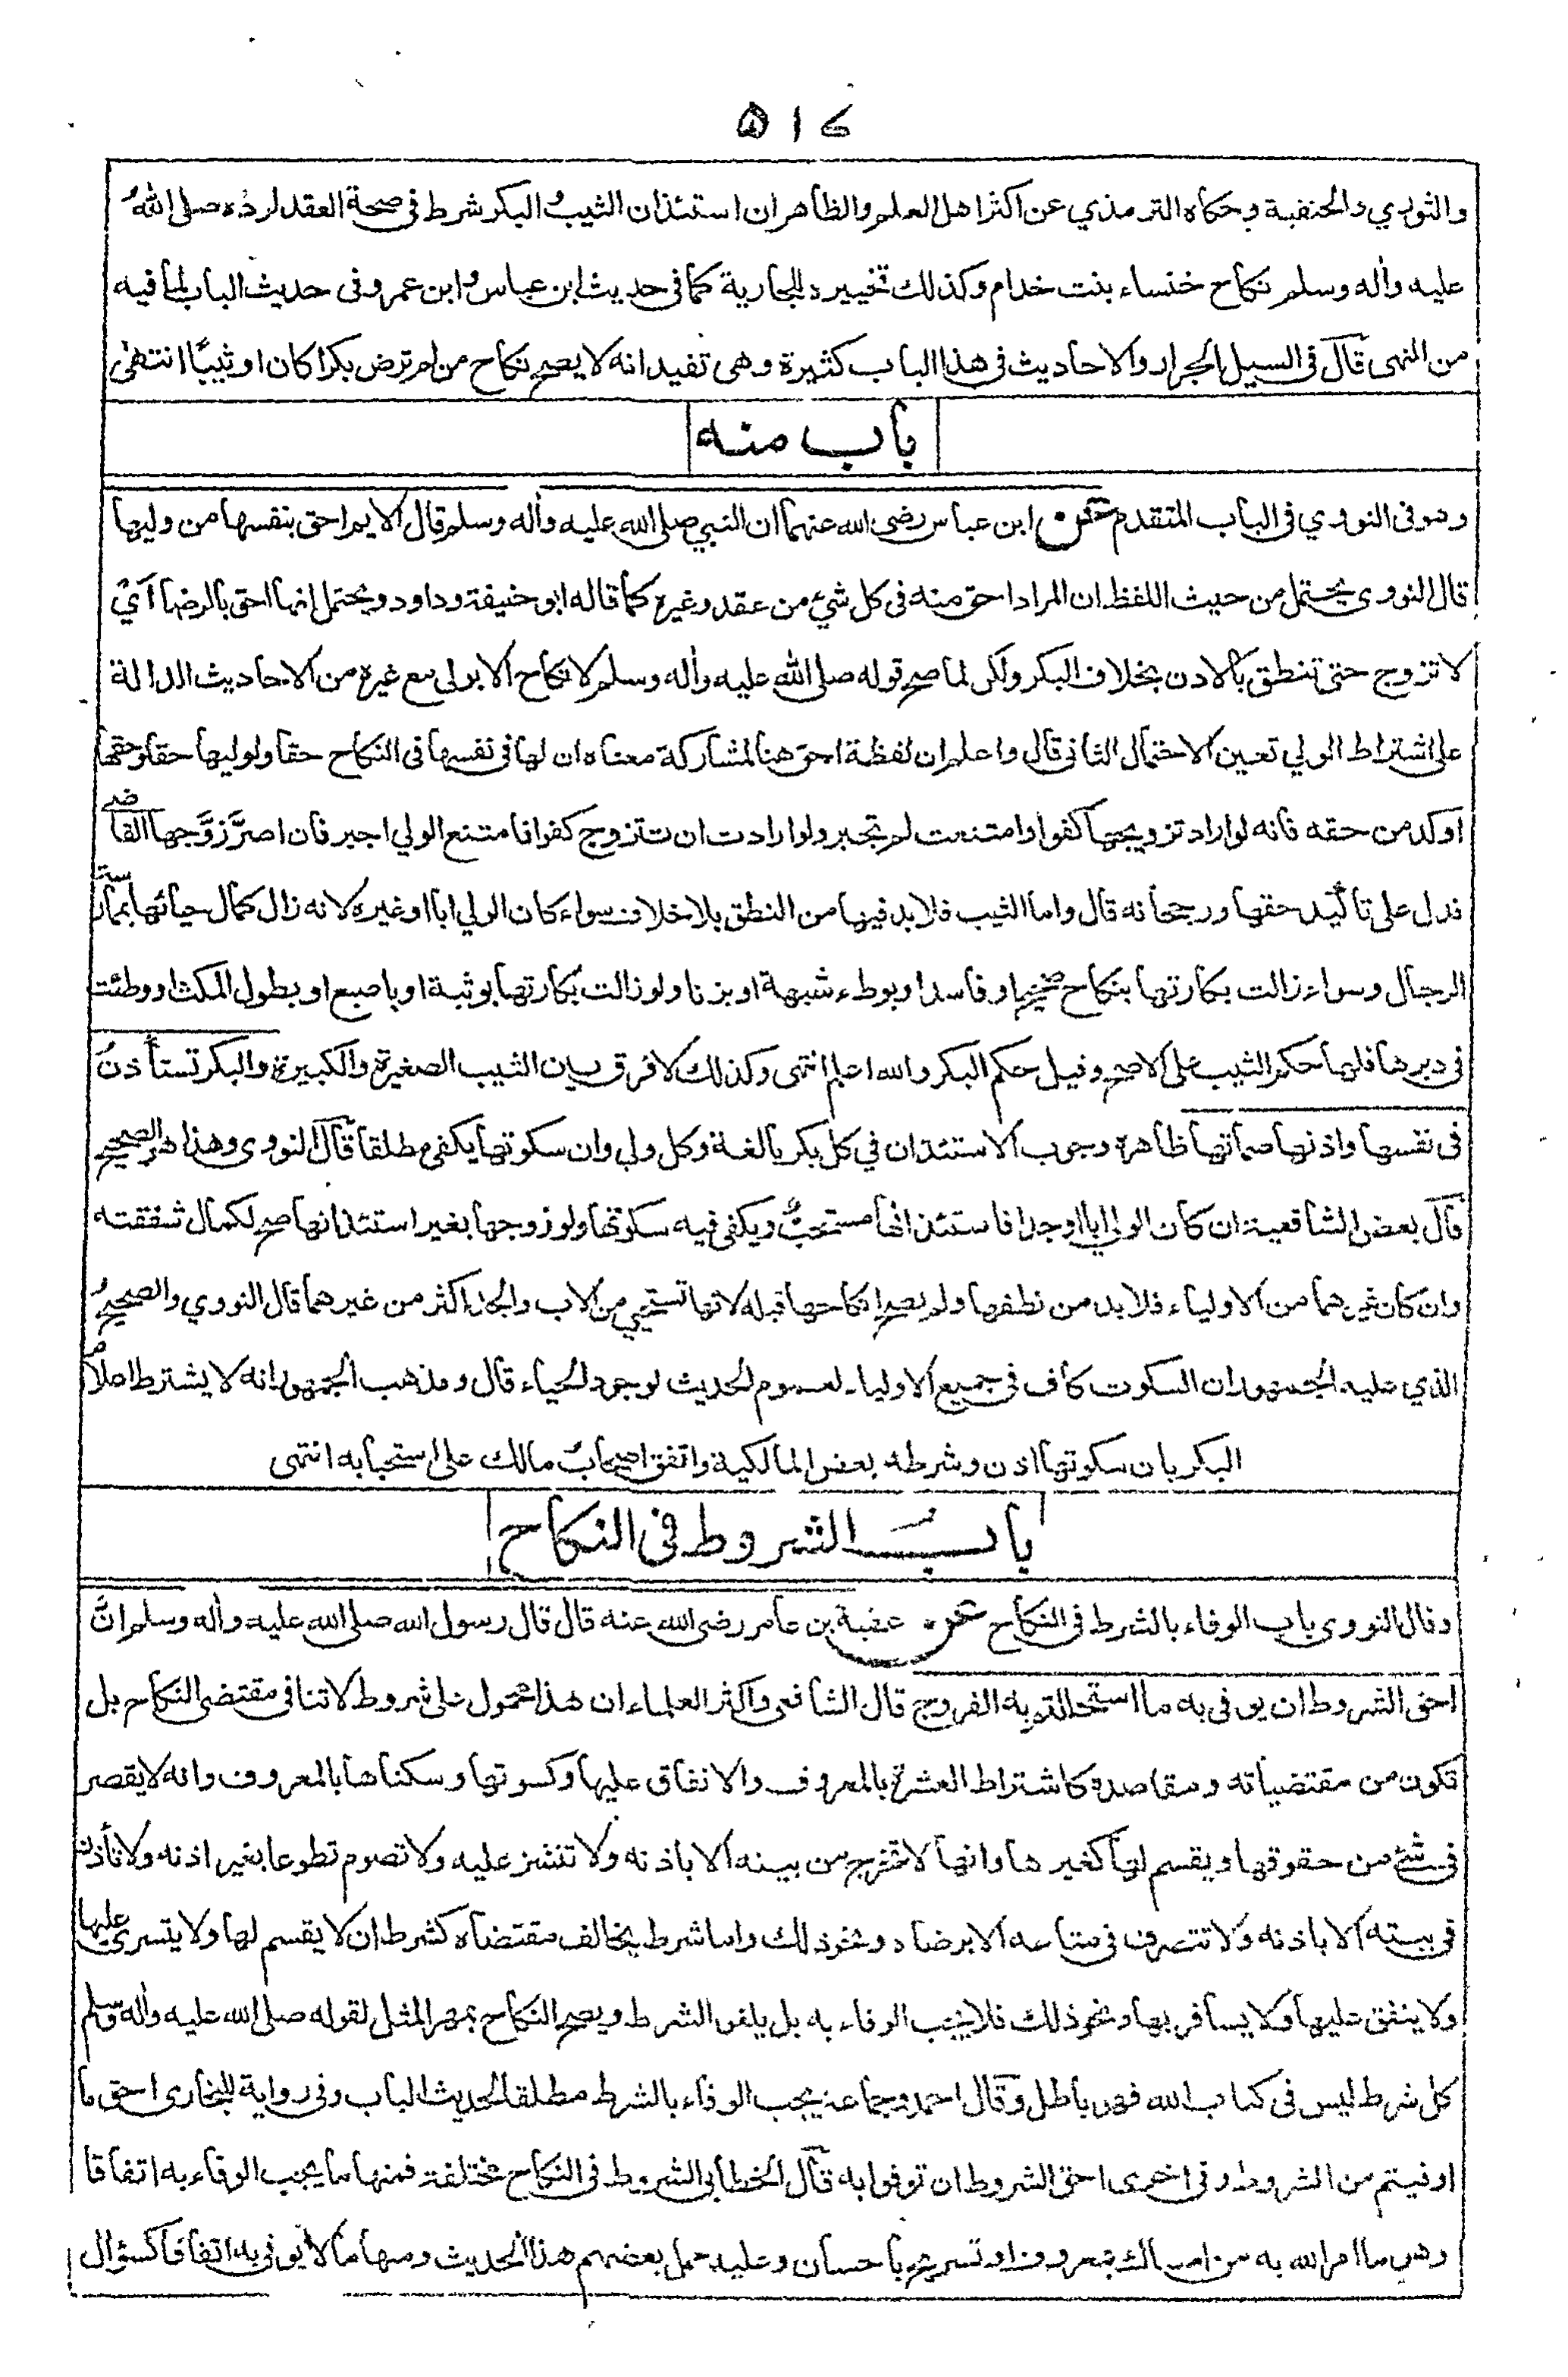 ٥١٧
والثوري والحنفية وحكاه الترمذي عن اكثر اهل العلم والظاهر ان استئذان الثيب والبكر شرط فى صحة العقد لرده صلى الله
عليه وأله وسلم نكاح خنساء بنت خدام وكذلك تخييره للجارية كما فى حديث ابن عباس وابن عمر وفى حديث الباب لما فيه
من النهى قال فى السيل الجرار والاحاديث فى هذا الباب كثيرة وهى تفيد انه لا يصح نكاح من لم ترض بكرا كان او ثيبًا انتهى
باب منه
وهو فى النووي فى الباب المتقدم عن ابن عباس رضى الله عنهما ان النبي صلى الله عليه وأله وسلم قال الايم احق بنفسها من وليها
قال النووى يحتمل من حيث اللفظ ان المراد احق منه فى كل شئ من عقد وغيره كما قاله ابو حنيفة وداود ويحتمل انها احق بالرضا أي
لا تزوج حتى تنطق بالاذن بخلاف البكر ولكن لما صح قوله صلى الله عليه وأله وسلم لا نكاح الا بولى مع غيره من الاحاديث الدالة
على اشتراط الولي تعين الاحتمال الثانى قال واعلم ان لفظة احق هنا للمشاركة معناه ان لها فى نفسها فى النكاح حقا ولوليها حقا وحقها
اوكد من حقه فانه لو اراد تزويجها كفوا وامتنعت لم تجبر ولو ارادت ان تتزوج كفوا فامتنع الولي اجبر فان اصرَّ زوَّجها القاضي
فدل على تأكيد حقها ورجحانه قال واما الثيب فلا بد فيها من النطق بلا خلاف سواء كان الولي ابا او غيره لانه زال كمال حيائها بممارسة
الرجال وسواء زالت بكارتها بنكاح صحيح او فاسد او بوطء شبهة او بزنا ولو زالت بكارتها بوثبة او باصبع او بطول المكث او وطئت
فى دبرها فلها حكم الثيب على الاصح وقيل حكم البكر والله اعلم انتهى وكذلك لا فرق بين الثيب الصغيرة والكبيرة والبكر تستأذن
فى نفسها واذنها صماتها ظاهره وجوب الاستئذان في كل بكر بالغة وكل ولي وان سكوتها يكفى مطلقا قال النووى وهذا هو الصحيح
قال بعض الشافعية ان كان الولي ابا او جدا فاستئذانها مستحبٌّ ويكفى فيه سكوتها ولو زوجها بغير استئذانها صح لكمال شفقته
وان كان غيرهما من الاولياء فلا بد من نطقها ولم يصح انكاحها قبله لانها تستحيي من الاب والجد اكثر من غيرهما قال النووي والصحيح
الذي عليه الجمهور ان السكوت كاف فى جميع الاولياء لعموم الحديث لوجود الحياء قال ومذهب الجمهور انه لا يشترط اعلام
البكر بان سكوتها اذن وشرطه بعض المالكية واتفق اصحاب مالك على استحبابه انتهى
باب الشروط فى النكاح
وقال النووى باب الوفاء بالشرط فى النكاح عن عقبة بن عامر رضى الله عنه قال قال رسول الله صلى الله عليه وأله وسلم انَّ
احق الشروط ان يوفى به ما استحللتم به الفروج قال الشافعى واكثر العلماء ان هذا محمول على شروط لا تنافى مقتضى النكاح بل
تكون من مقتضياته ومقاصده كاشتراط العشرة بالمعروف والانفاق عليها وكسوتها وسكناها بالمعروف وانه لا يقصر
فى شئ من حقوقها ويقسم لها كغيرها وانها لا تخرج من بيته الا باذنه ولا تنشز عليه ولا تصوم تطوعا بغير اذنه ولا تأذن
فى بيته الا باذنه ولا تتصرف فى متاعه الا برضاه ونحو ذلك واما شرط يخالف مقتضاه كشرط ان لا يقسم لها ولا يتسرى عليها
ولا ينفق عليها ولا يسافر بها ونحو ذلك فلا يجب الوفاء به بل يلغو الشرط ويصح النكاح بمهر المثل لقوله صلى الله عليه وأله وسلم
كل شرط ليس فى كتاب الله فهو باطل وقال احمد وجماعة يجب الوفاء بالشرط مطلقا لحديث الباب وفى رواية للبخارى احق ما
اوفيتم من الشروط وفى اخرى احق الشروط ان توفوا به قال الخطابى الشروط فى النكاح مختلفة فمنها ما يجب الوفاء به اتفاقا
وهو ما امر الله به من امساك بمعروف او تسريح باحسان وعليه حمل بعضهم هذا الحديث ومنها ما لا يوفى به اتفاقا كسؤال